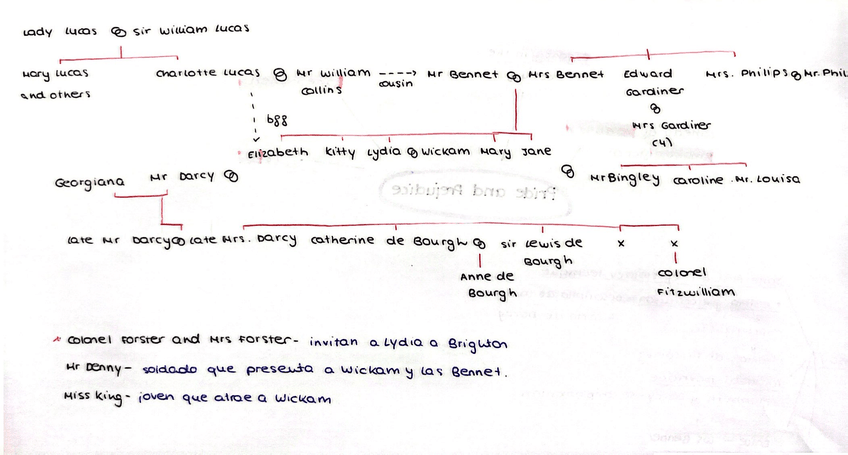 Lady Lucas Sir William Lucas
Mary Lucas Charlotte Lucas Mr William ----> Mr Bennet Mrs Bennet Edward Mrs. Philips Mr. Phil
and others Collins cousin Gardiner
bff Mrs Gardirer
(4)
Elizabeth Kitty Lydia Wickam Mary Jane
Georgiana Mr Darcy Mr Bingley Caroline .Mr. Louisa
Pride and Prejudice
Late Mr Darcy Late Mrs. Darcy Catherine de Bourgh Sir Lewis de x x
Bourgh
Anne de Colonel
Bourgh Fitzwilliam
* Colonel Forster and Mrs Forster- invitan a Lydia a Brighton
Mr Denny- soldado que presenta a Wickam y las Bennet.
Miss King- joven que atrae a Wickam